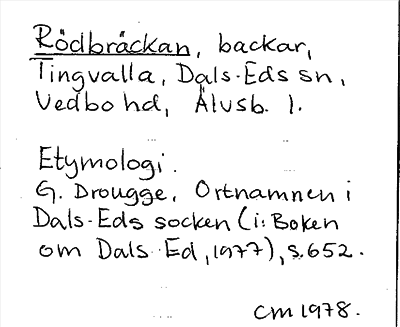 Rödbräckan, backar,
Tingvalla, Dals-Eds sn,
Vedbo hd, Älvsb. l.
Etymologi.
G. Drougge, Ortnamnen i
Dals-Eds socken (i: Boken
om Dals-Ed, 1977), s. 652.
CM 1978.